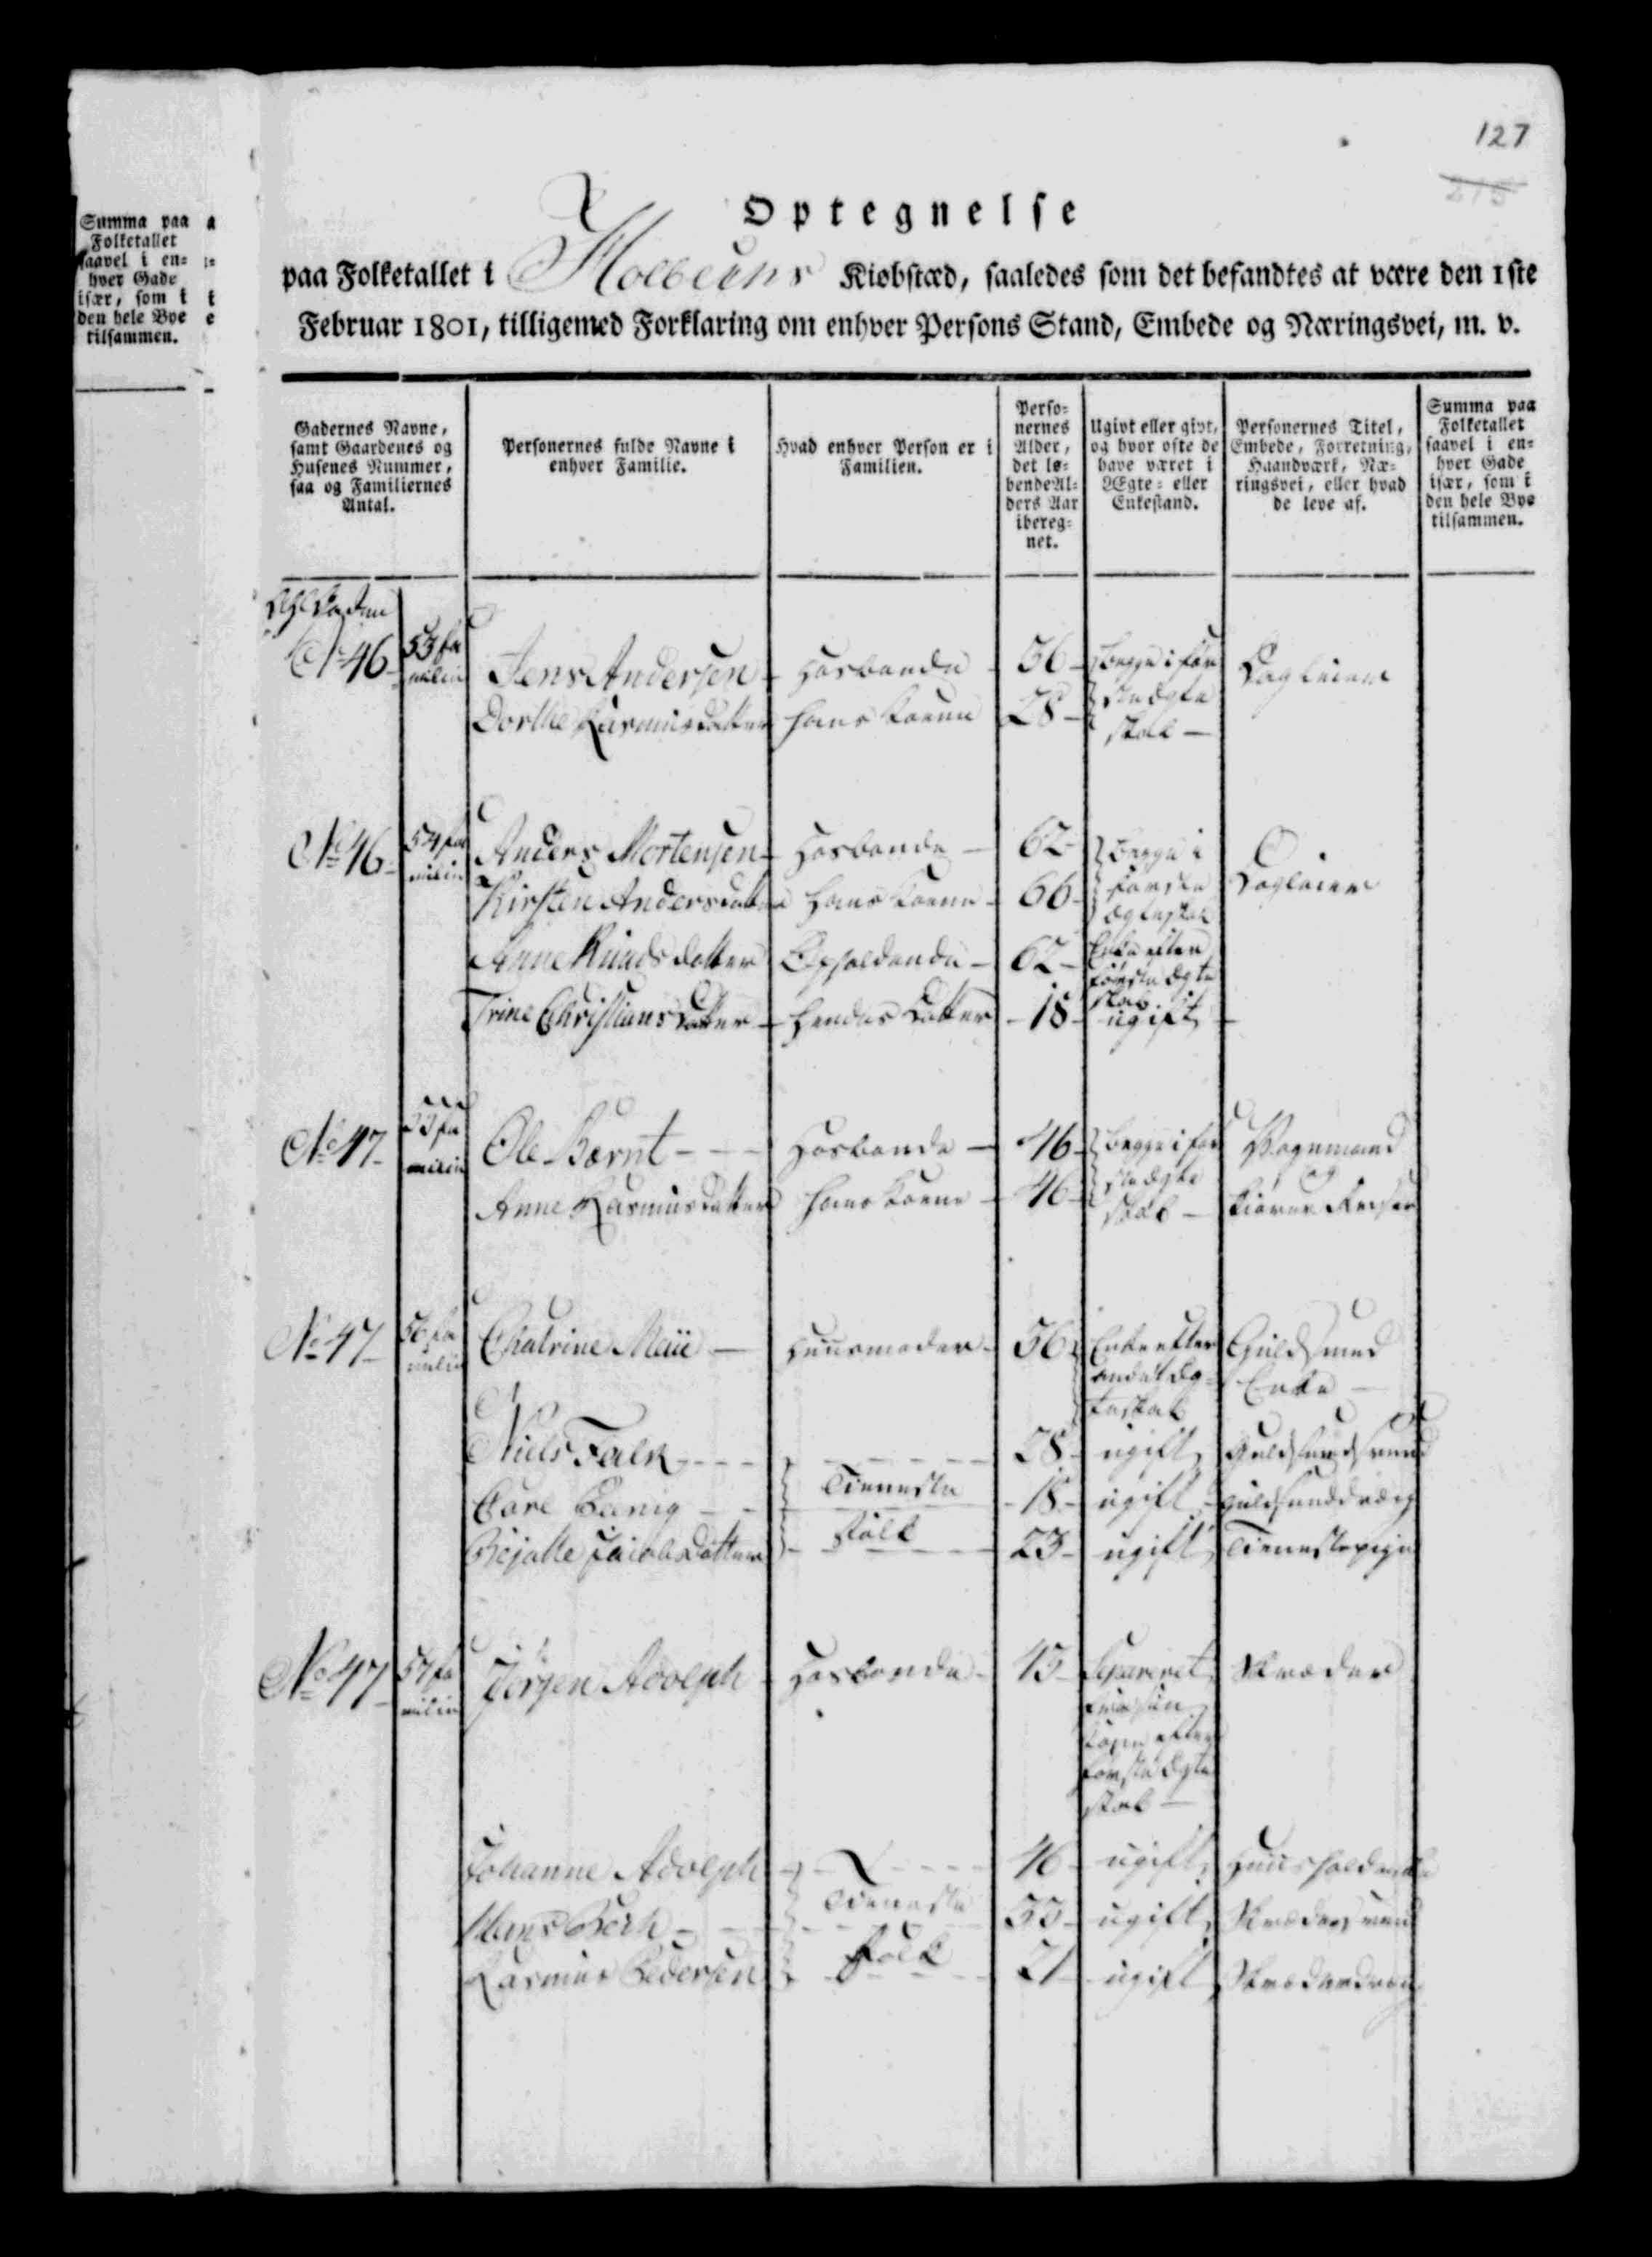 127
215
Summa paa
Folketallet
saavel i en=
hver Gade
især, som i
den hele Bye
tilsammen.
Optegnelse
paa Folketallet i Holbechs Kiøbstæd, saaledes som det befandtes at være den 1ste
Februar 1801, tilligemed Forklaring om enhver Persons Stand, Embede og Næringsvei, m. v.
Gadernes Navne,
samt Gaardenes og
Husenes Nummer,
saa og Familiernes
Antal.
Personernes fulde Navne i
enhver Familie.
Hvad enhver Person er i
Familien.
Perso=
nernes
Alder,
det lø=
bende Al=
ders Aar
ibereg=
net.
Ugivt eller givt,
og hvor ofte de
have været i
Ægte= eller
Enkestand.
Personernes Titel,
Embede, Forretning,
Haandværk, Næ=
ringsvei, eller hvad
de leve af.
Summa paa
Folketallet
saavel i en=
hver Gade
især, som i
den hele Bye
tilsammen.
No 46 53 fa
milie
Jens Andersen Hosbonde 56 Begge i før
ste Ægte
skab Dagleiere
Dorthe Rasmusdatter hans Koene 28
No 46 54 fa
milie
Anders Mortensen Hosbonde 62 Begge i
første
Ægteskab Dagleier
Kirsten Andersdatter hans Koene 66
Anne Knudsdatter Opholdende 62 Enke efter
første Ægte
skab
Trine Christiansdatter hendes Datter 18 ugift
No 47 55 fa
milie
Ole Bernt Hosbonde 46 Begge i før
ste Ægte
skab Vognmand
og
Anne Rasmusdatter hans Koene 46
No 47 56 fa
milie
Chatrine Maii Huusmoder 56 Enke efter
andet Æg=
teskab Guldsmed
Enke
Niels Falk 28 ugift Guldsmedsvend
Tieneste
folk
18 ugift Guldsmeddreng
23 ugift Tienestepige
No 47 57 fa
milie
Jörgen Adolph Hosbonde 45 Separeret
fra sin
Kone efter
første Ægte
skab Skræder
Johanne Adolph 46 ugift Huusholderske
Tieneste
folk
Hans Berh 33 ugift Skrædersvend
Rasmus Pedersen 21 ugift Skræderdreng